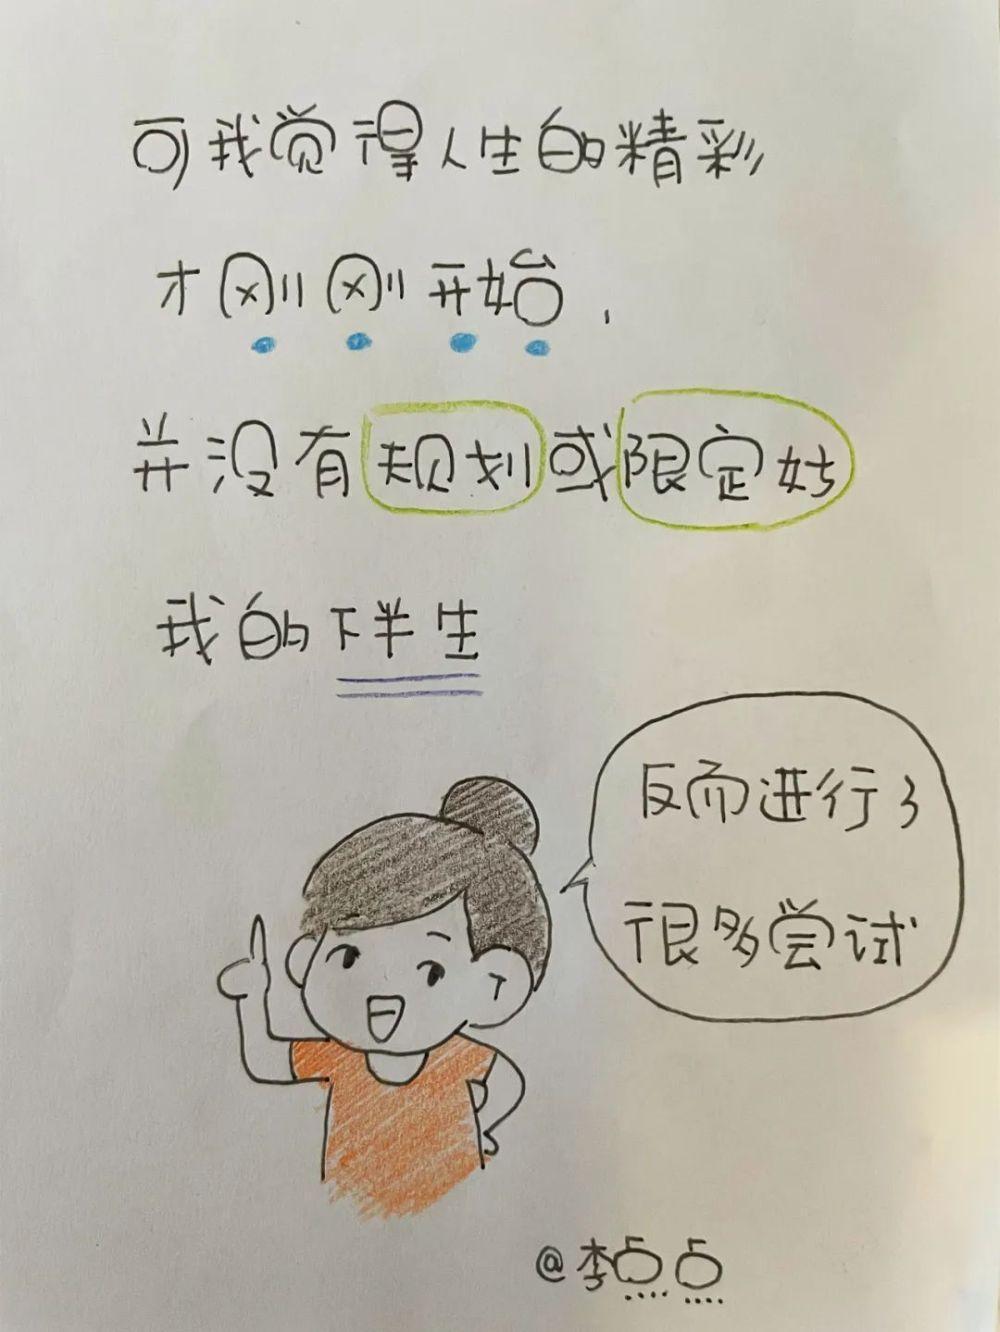 可我觉得人生的精彩
才刚刚开始，
并没有规划或限定好
我的下半生
反而进行了
很多尝试
@李点点